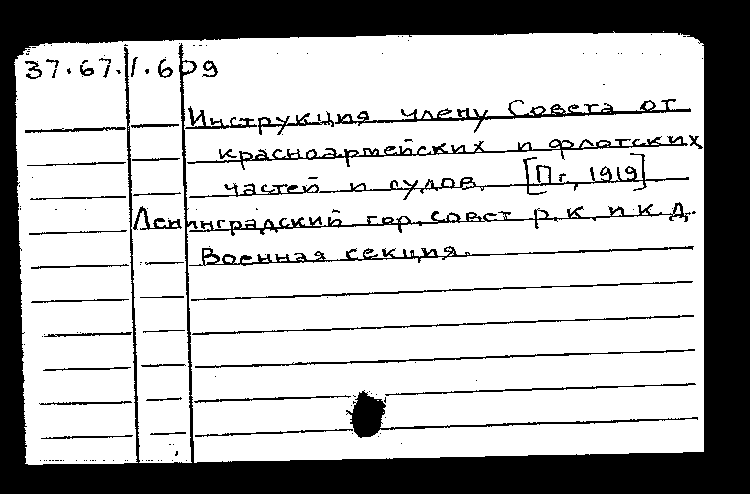 37.67.1.609
Инструкция члену Совета от
красноармейских и флотских
частей и судов. [Пг., 1919]
Ленинградский гор. совет р. к. и к. д.
Военная секция.